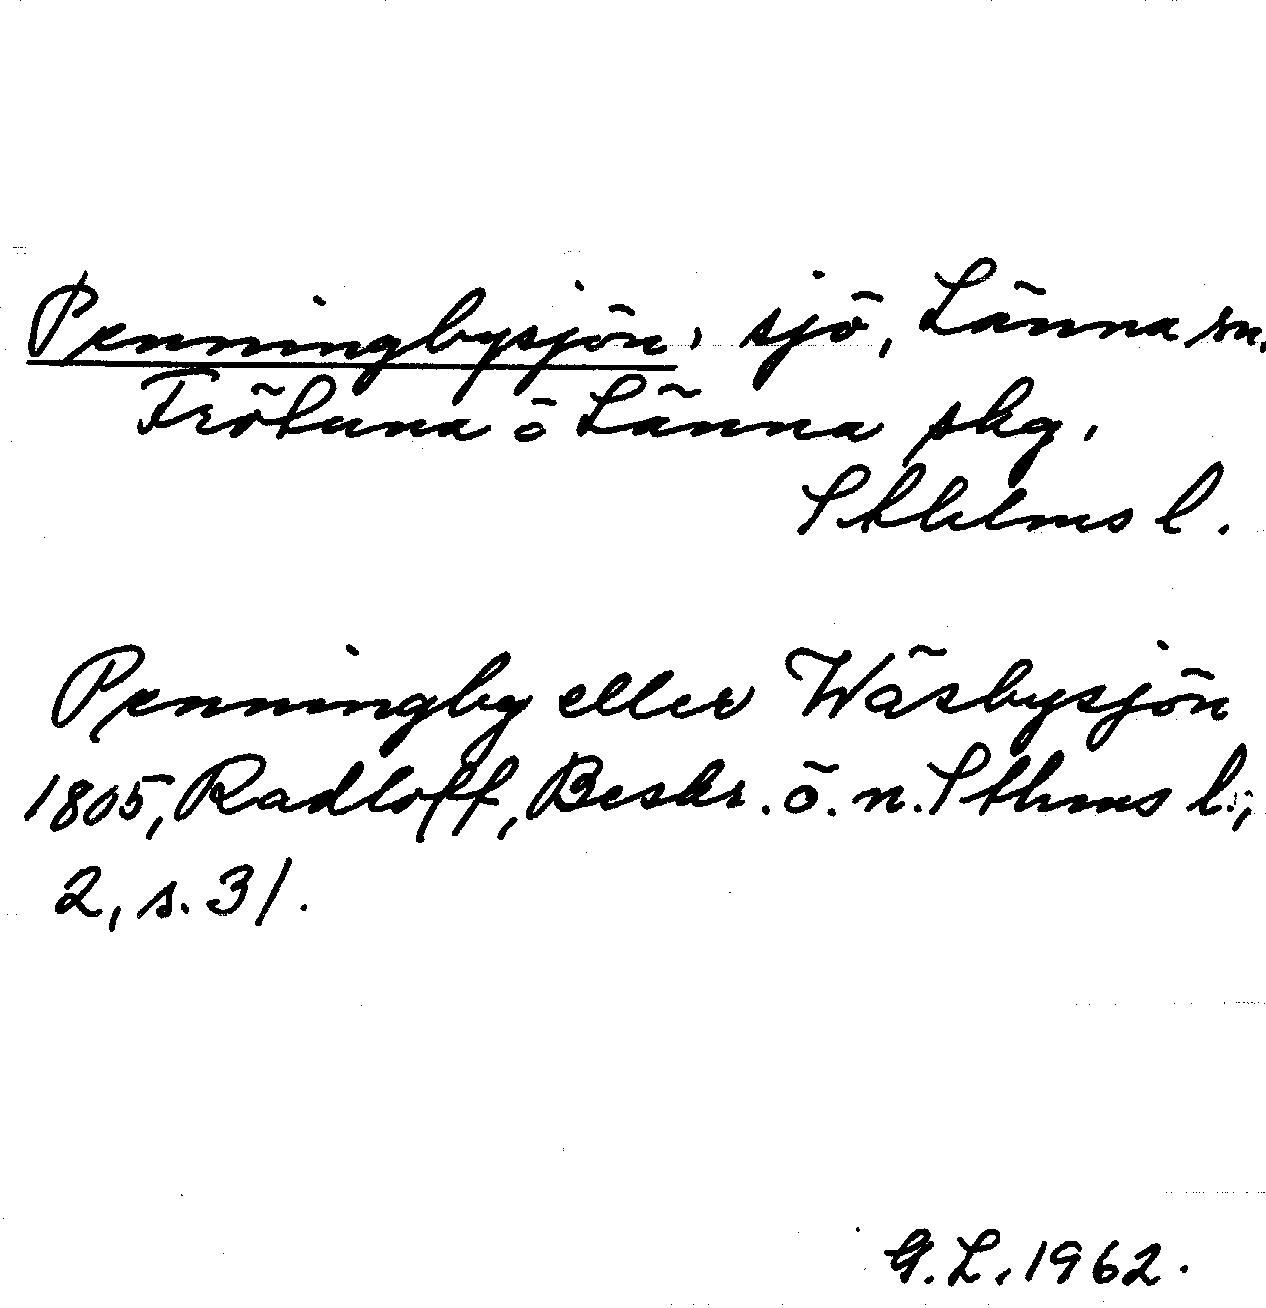 Penningbysjön, sjö, Länna sn.
Frötuna o Länna skg,
Sthlms l.
Penningby eller Wäsbysjön
1805, Radloff, Beskr. ö. n. Sthms l.,
2, s. 31.
G. L. 1962.